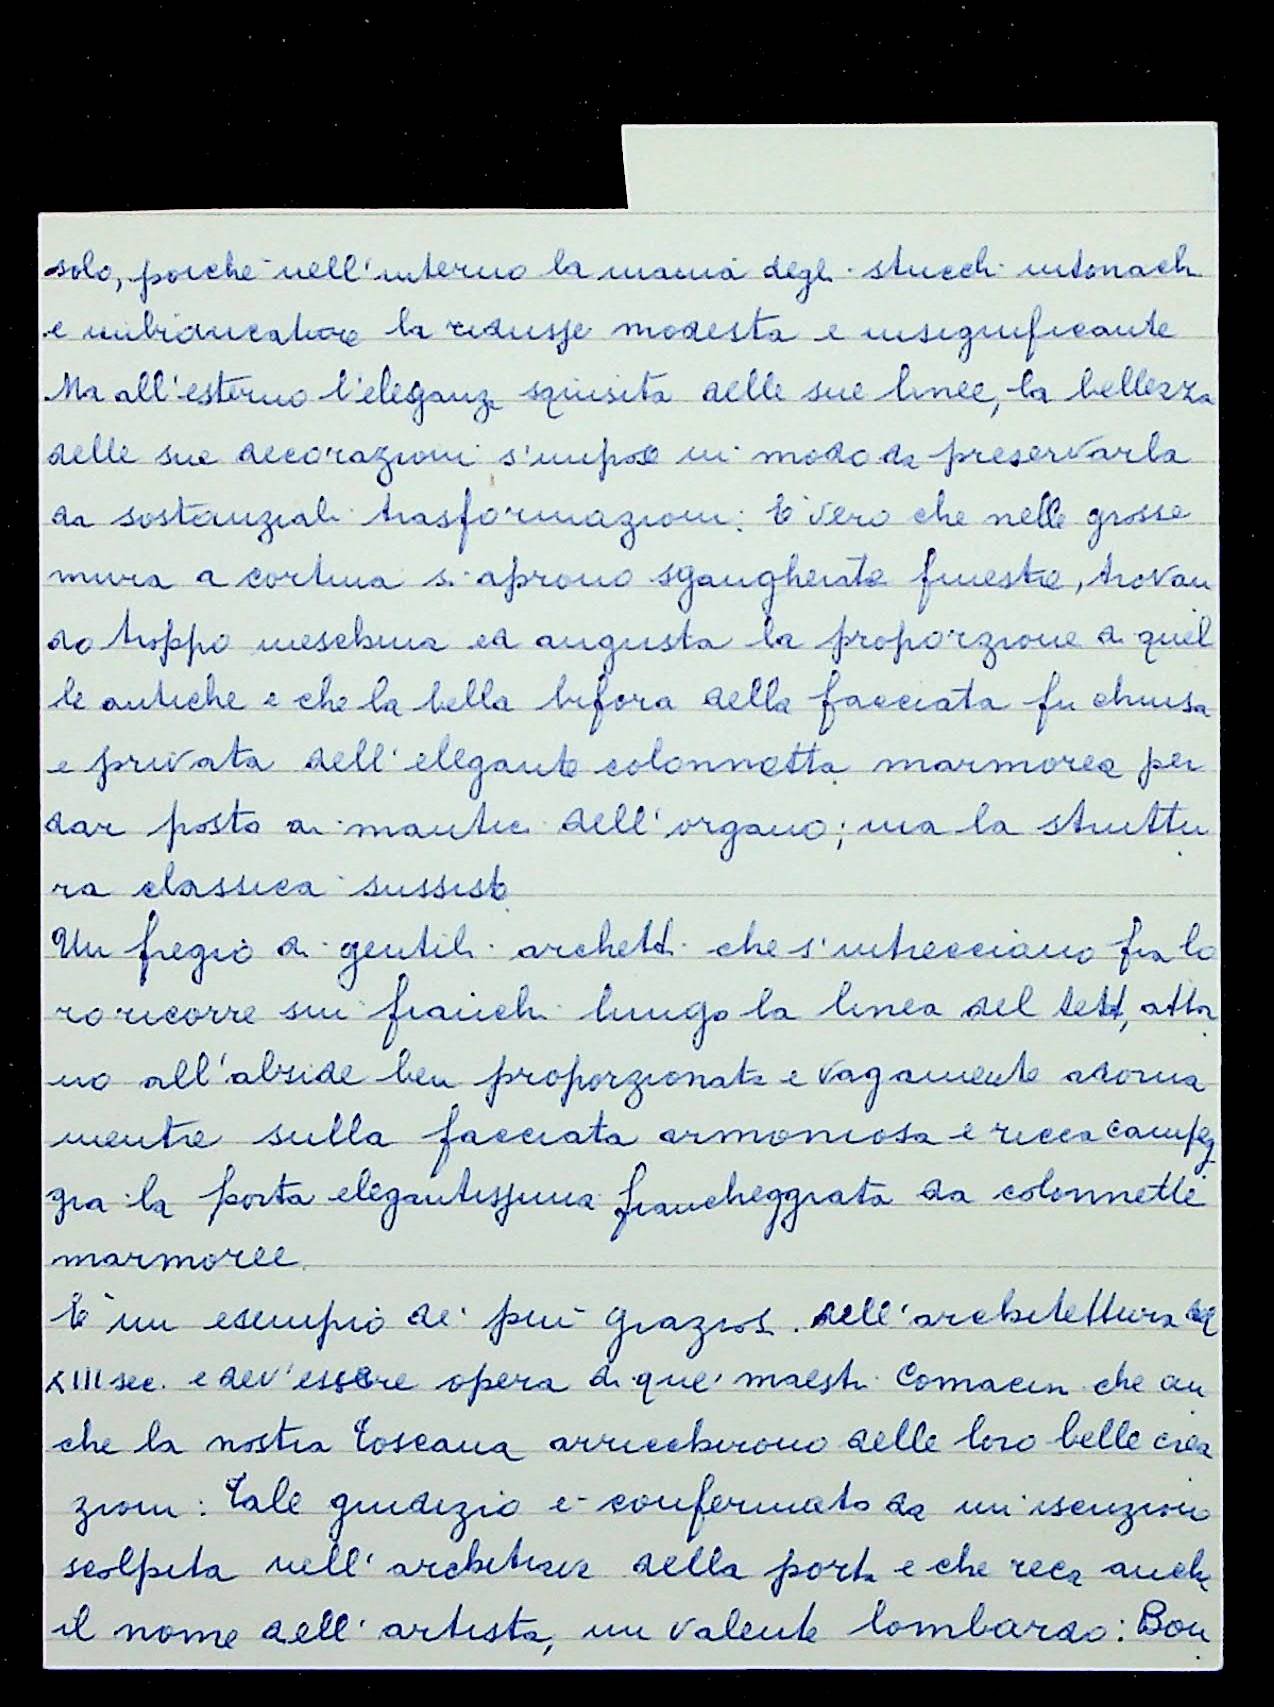 solo, poiché nell'interno la mania degli stucchi intonachi
e imbiancature la ridusse modesta e insignificante
Ma all'esterno l'eleganza squisita delle sue linee, la bellezza
delle sue decorazioni s'impose in modo da preservarla
da sostanziali trasformazioni: È vero che nelle grosse
mura a cortina si aprono sgangherate finestre, trovan
do troppo meschina ed angusta la proporzione di quel
le antiche e che la bella bifora della facciata fu chiusa
e privata dell'elegante colonnetta marmorea per
dar posto ai mantici dell'organo; ma la struttu
ra classica sussiste
Un fregio di gentili archetti che s'intrecciano fra lo
ro ricorre sui fianchi lungo la linea del tetto, attor
no all'abside ben proporzionata e vagamente adorna
mentre sulla facciata armoniosa e ricca campeg
gia la porta elegantissima fiancheggiata da colonnette
marmoree.
È un esempio de' più graziosi dell'architettura del
XIII sec. e dev'essere opera di que' maestri Comacini che an
che la nostra Toscana arricchirono delle loro belle crea
zioni: Tale giudizio è confermato da un'iscrizione
scolpita nell'architrave della porta e che reca anche
il nome dell'artista, un valente lombardo: Bon